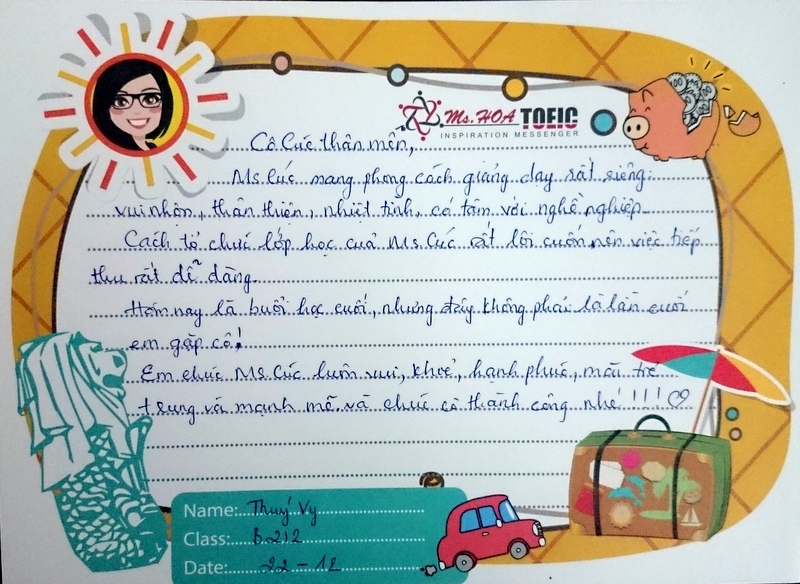 Ms. HOA TOEIC
INSPIRATION MESSENGER
Cô Cúc thân mến,
Ms Cúc mang phong cách giảng dạy rất riêng:
vui nhộn, thân thiện, nhiệt tình, có tâm với nghề nghiệp.
Cách tổ chức lớp học của Ms. Cúc rất lôi cuốn, nên việc tiếp
thu rất dễ dàng.
Hôm nay là buổi học cuối, nhưng đây không phải là lần cuối
em gặp cô!
Em chúc Ms. Cúc luôn vui, khoẻ, hạnh phúc, mãi trẻ
trung và mạnh mẽ. và chúc cô thành công nhé !!! ♡
Name: Thuý Vy
Class: B212
Date: 22 - 12